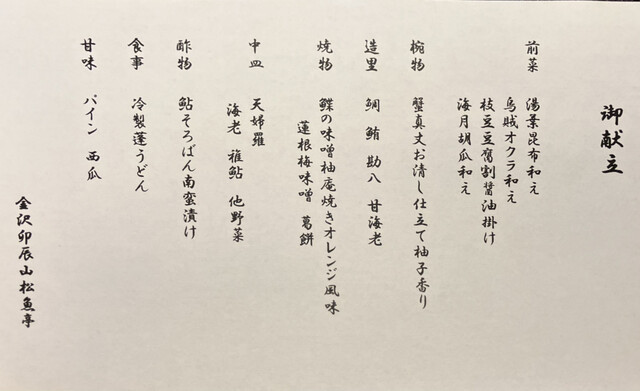 御献立
前菜 湯葉昆布和え
烏賊オクラ和え
枝豆豆腐割醤油掛け
海月胡瓜和え
椀物 蟹真丈お清し仕立て柚子香り
造里 鯛 鮪 勘八 甘海老
焼物 鰈の味噌柚庵焼きオレンジ風味
蓮根梅味噌 葛餅
中皿 天婦羅
海老 稚鮎 他野菜
酢物 鮎そろばん南蛮漬け
食事 冷製蓬うどん
甘味 パイン 西瓜
金沢卯辰山松魚亭